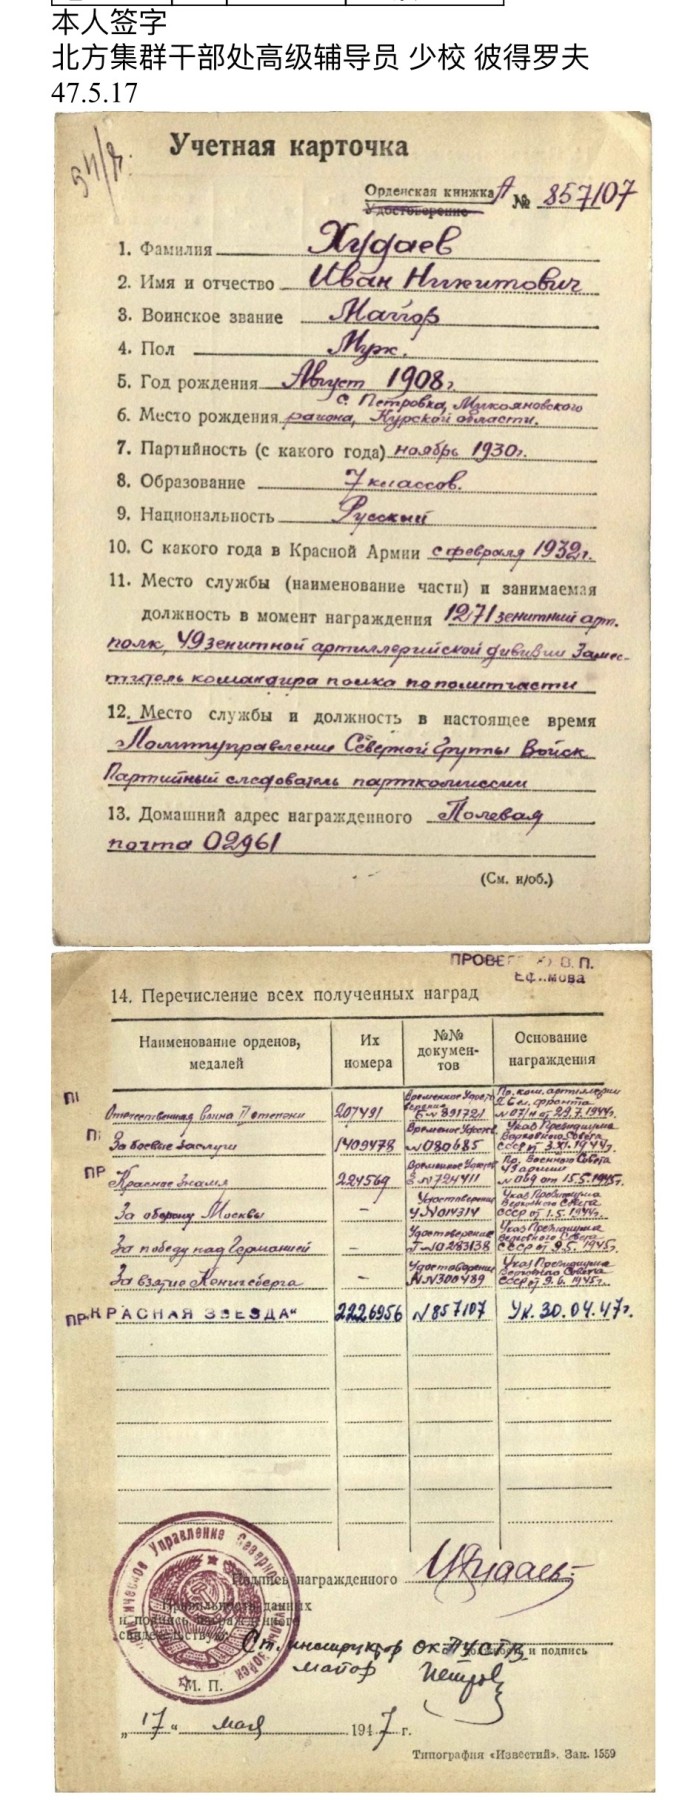 本人签字
北方集群干部处高级辅导员 少校 彼得罗夫
47.5.17
Учетная карточка
Орденская книжка А № 857107
Удостоверение
1. Фамилия Худаев
2. Имя и отчество Иван Никитович
3. Воинское звание Майор
4. Пол Муж.
5. Год рождения Август 1908г
с. Петровка, Микояновского
6. Место рождения района, Курской области.
7. Партийность (с какого года) ноябрь 1930г.
8. Образование 7 классов.
9. Национальность Русский
10. С какого года в Красной Армии с февраля 1932г.
11. Место службы (наименование части) и занимаемая
должность в момент награждения 1271 зенитный арт.
полк, 49 зенитной артиллерийской дивизии Замес-
титель командира полка по политчасти
12. Место службы и должность в настоящее время
Политуправление Северной Группы Войск
Партийный следователь парткомиссии
13. Домашний адрес награжденного Полевая
почта 02961
(См. н/об.)
ПРОВЕ О. П.
Ефимова
14. Перечисление всех полученных наград
Наименование орденов, медалей
Их номера
№№ докумен-тов
Основание награждения
Отечественная Война II степени 207491 Временное Удосто-верение Б № 891721 Пр. ком. артиллерии 2 Бел. фронта № 071н от 22.7.1944г.
За боевые заслуги 1409478 Временное Удостов. № 080685 Указ Президиума Верховного Совета СССР от 3.XI.1944г.
Красное Знамя 224569 Временное Удостов. № 724411 Пр. Военного Совета 43 армии № 069 от 15.5.1945г.
За оборону Москвы – Удостоверение У № 014314 Указ Президиума Верховного Совета СССР от 1.5.1944г.
За победу над Германией – Удостоверение № 0283138 Указ Президиума Верховного Совета СССР от 9.5.1945г.
За взятие Кенигсберга – Удостоверение № 300489 Указ Президиума Верховного Совета СССР от 9.6.1945г.
ПР „КРАСНАЯ ЗВЕЗДА“ 2226956 № 857107 Ук. 30.04.47г.
Подпись награжденного
Правильность данных
и подпись награжденного
свидетельствую: Ст. инструктор ОК ПУСГВ
и подпись
майор Петров
М. П.
„17“ мая 1947 г.
Типография «Известий». Зак. 1559